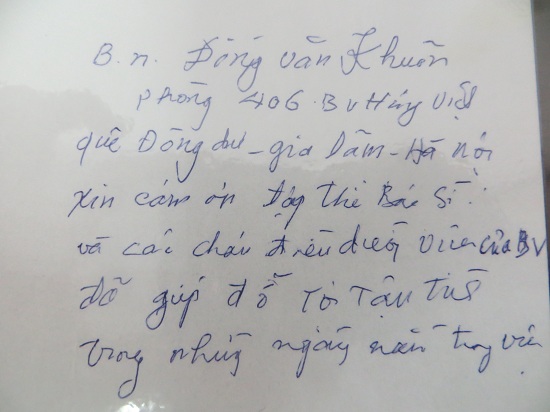 B.n. Đồng Văn Khuôn
Phòng 406. BV Hưng Việt
quê Đông dư - gia Lâm - Hà nội
xin cảm ơn tập thể Bác Sĩ
và các cháu điều dưỡng viên của BV
đã giúp đỡ tôi tận tình
trong những ngày nằm trong viện